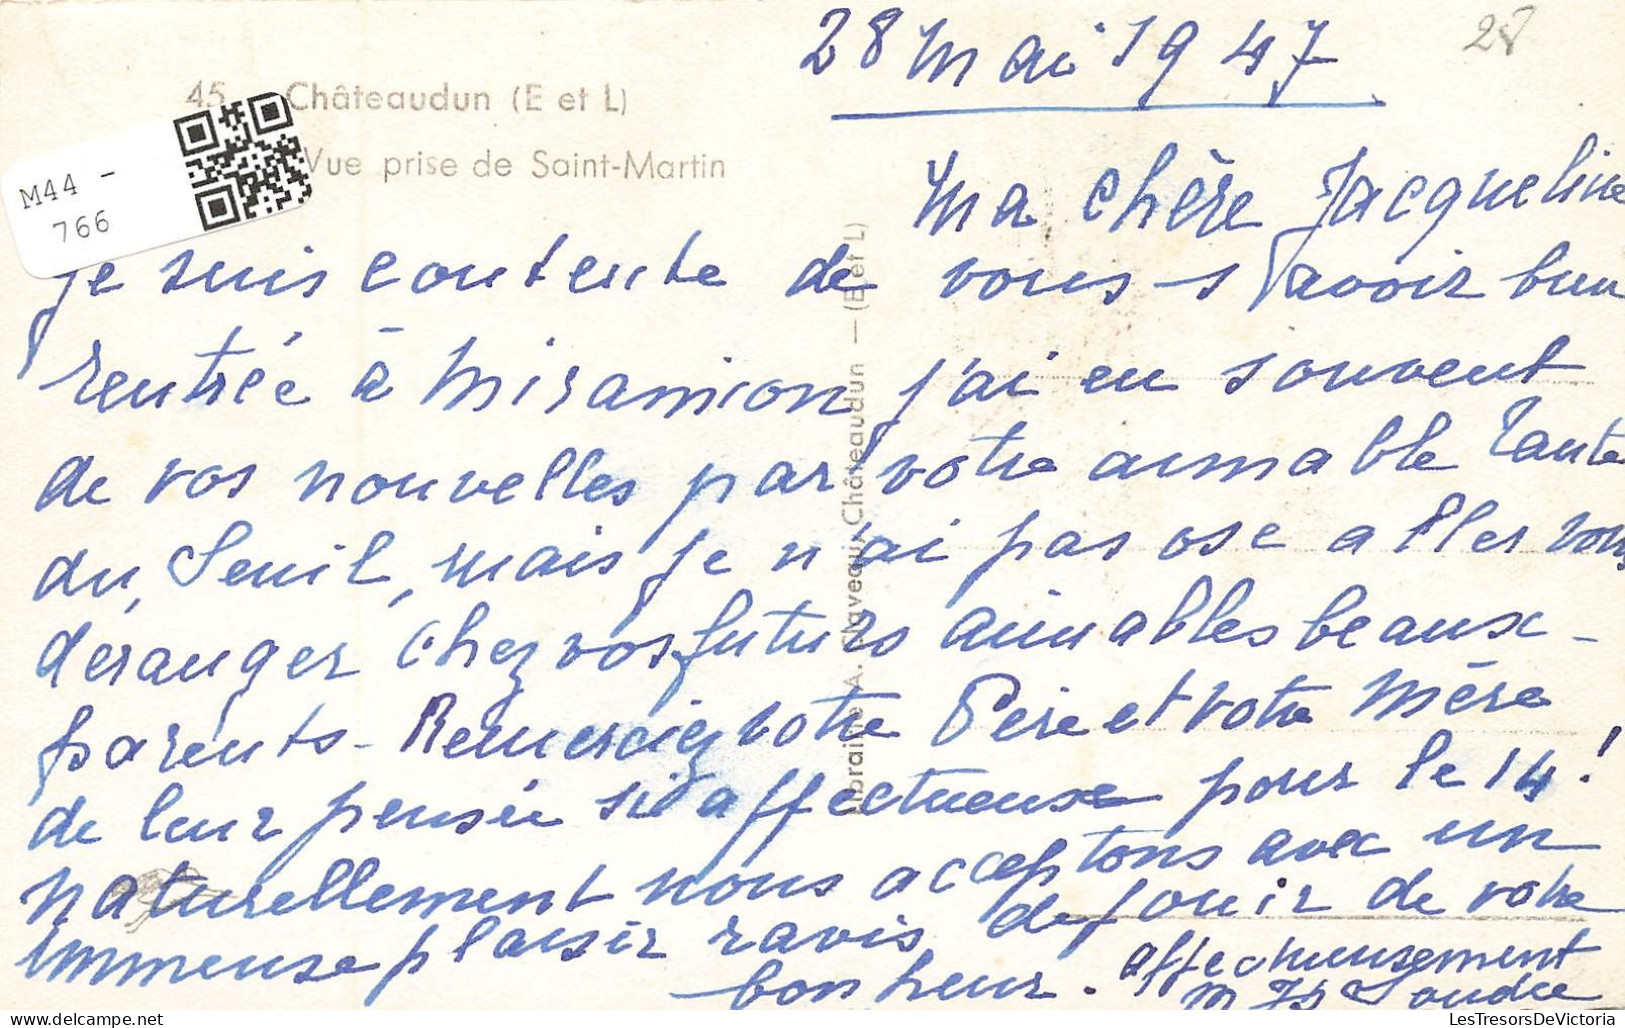 28 mai 1947
28
45 Châteaudun (E et L)
Vue prise de Saint-Martin
M44 -
766
Ma chère Jacqueline
je suis contente de vous savoir bien
rentrée à Miramion j'ai eu souvent
de vos nouvelles par votre aimable Tante
du Seuil, mais je n'ai pas ose aller vous
déranger chez vos futurs aimables beaux-
parents - Remerciez votre Père et votre Mère
de leur pensée si affectueuse pour le 14!
naturellement nous acceptons avec un
immense plaisir ravis de jouir de votre
bonheur. affectueusement
A. Naveau, Châteaudun — (E et L)
LesTresorsDeVictoria